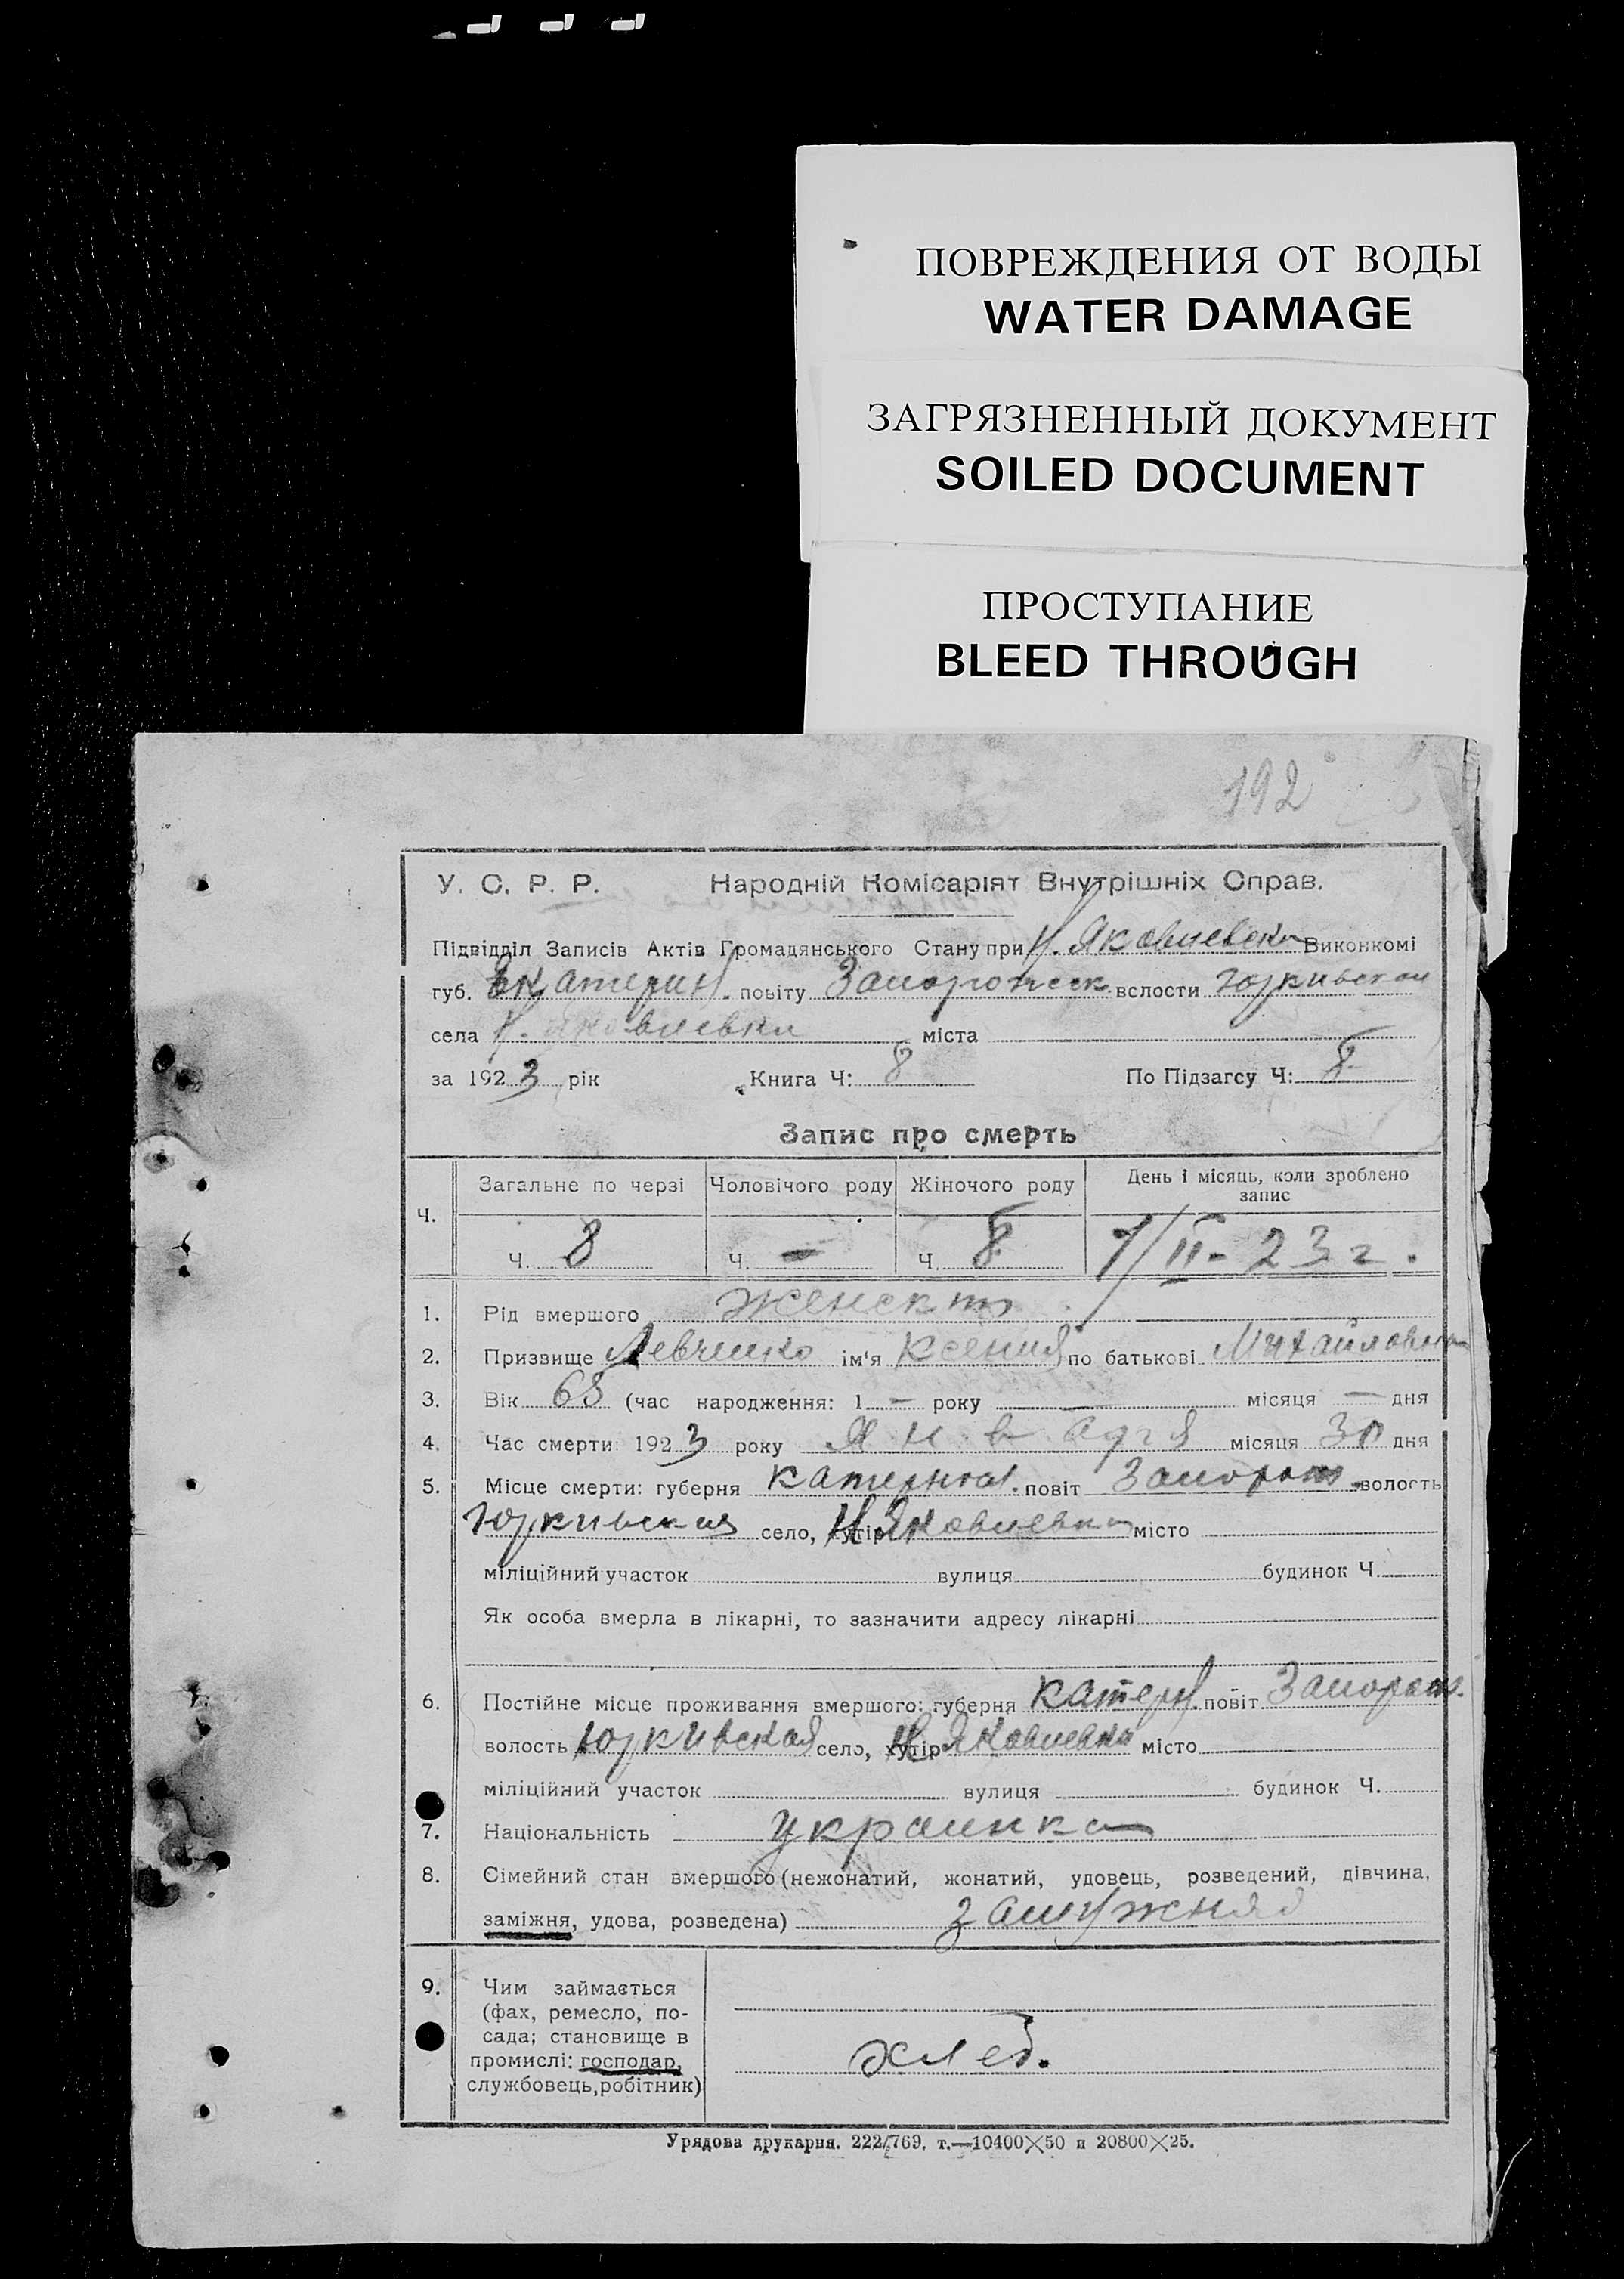 ПОВРЕЖДЕНИЯ ОТ ВОДЫ
WATER DAMAGE
ЗАГРЯЗНЕННЫЙ ДОКУМЕНТ
SOILED DOCUMENT
ПРОСТУПАНИЕ
BLEED THROUGH
192
У. С. Р. Р. Народній Комісаріят Внутрішніх Справ.
Підвідділ Записів Актів Громадянського Стану при Н. Яковлевском Виконкомі
губ. Екатерин. повіту Запорожск. вслости Юркивской
села Н. Яковлевки міста
за 1923 рік Книга Ч: 8 По Підзагсу Ч: 8
Запис про смерть
Ч. Загальне по черзі Чоловічого роду Жіночого роду День і місяць, коли зроблено запис
Ч. 8 Ч. — Ч. 8 1/II - 23 г.
1. Рід вмершого женск
2. Призвище Левченко ім'я Ксения по батькові Михайловна
3. Вік 68 (час народження: 1 — року — місяця — дня
4. Час смерти: 1923 року Января місяця 30 дня
5. Місце смерти: губерня Катерин. повіт Запорож. волость
Юркивская село, хутір Н Яковлевка місто
міліційний участок вулиця будинок Ч.
Як особа вмерла в лікарні, то зазначити адресу лікарні
6. Постійне місце проживання вмершого: губерня Катерин. повіт Запорож.
волость Юркивская село, хутір Н Яковлевка місто
міліційний участок вулиця будинок Ч.
7. Національність украинка
8. Сімейний стан вмершого (нежонатий, жонатий, удовець, розведений, дівчина,
заміжня, удова, розведена) замужняя
9. Чим займається
(фах, ремесло, по-
сада; становище в
промислі: господар, хлеб.
службовець, робітник)
Урядова друкарня. 222/769. т.—10400×50 и 20800×25.